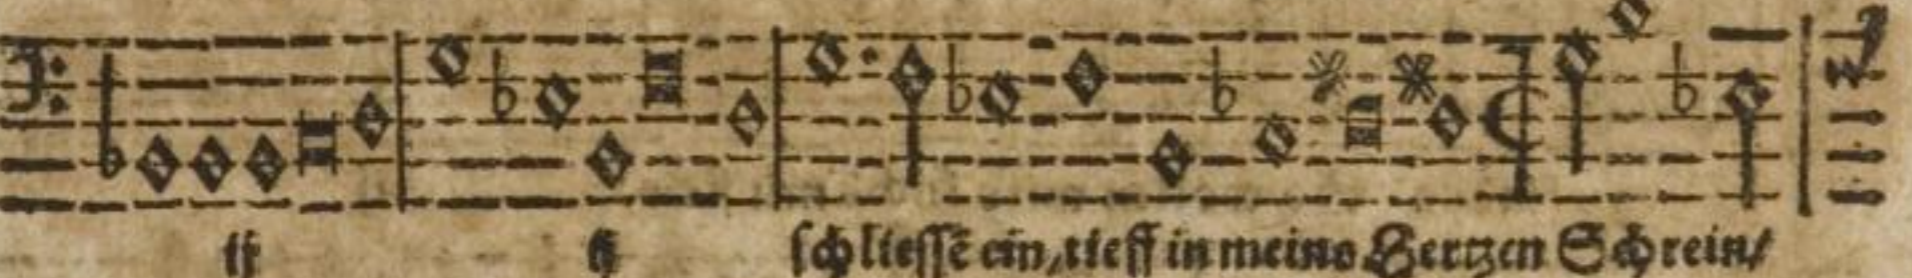 ij ij ſchlieſſẽ ein/tieff in meins Hertzen Schrein/